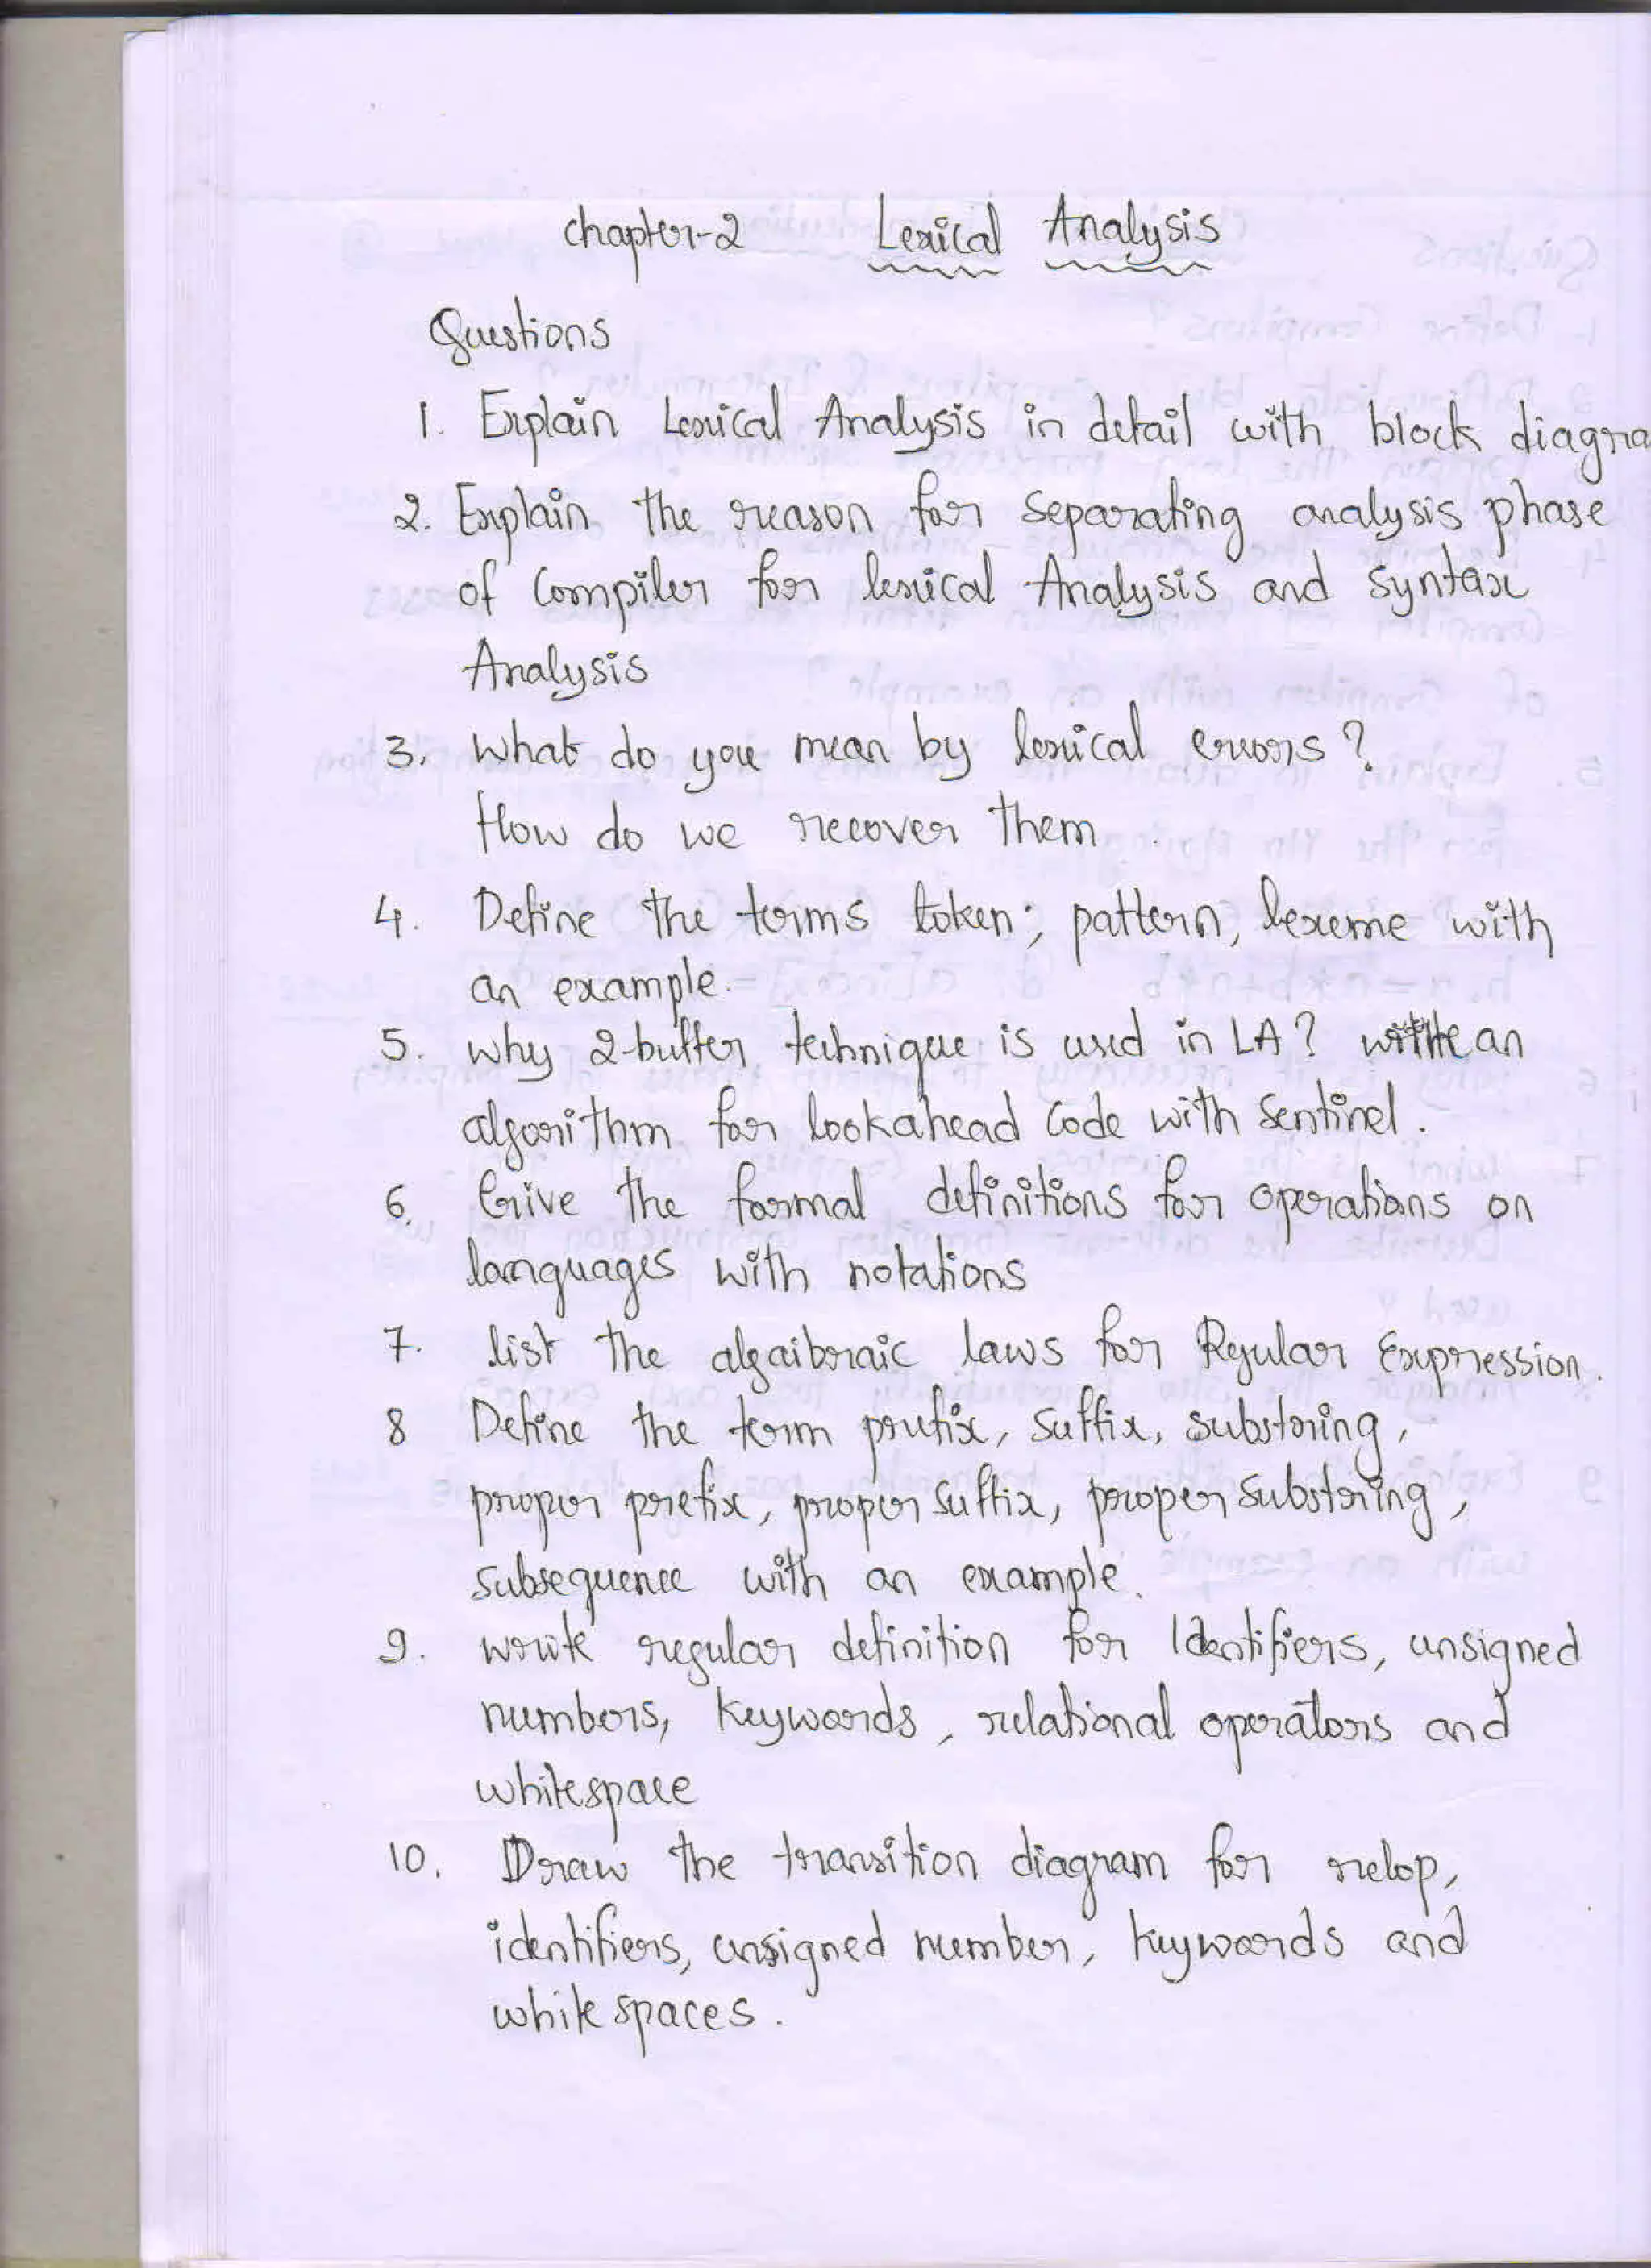 chapter-2 Lexical Analysis
Questions
1. Explain Lexical Analysis in detail with block diagra
2. Explain the reason for separating analysis phase
of Compiler for lexical Analysis and syntax
Analysis
3. What do you mean by lexical errors?
How do we recover them
4. Define the terms token; pattern, lexeme with
an example.
5. Why 2-buffer technique is used in LA? write an
algorithm for lookahead code with sentinel.
6. Give the formal definitions for operations on
languages with notations
7. list the algaibraic laws for Regular Expression.
8 Define the term prefix, suffix, substring,
proper prefix, proper suffix, proper substring,
subsequence with an example.
9. write regular definition for Identifiers, unsigned
numbers, keywords, relational operators and
whitespace
10. Draw the transition diagram for relop,
identifiers, unsigned number, keywords and
white spaces.